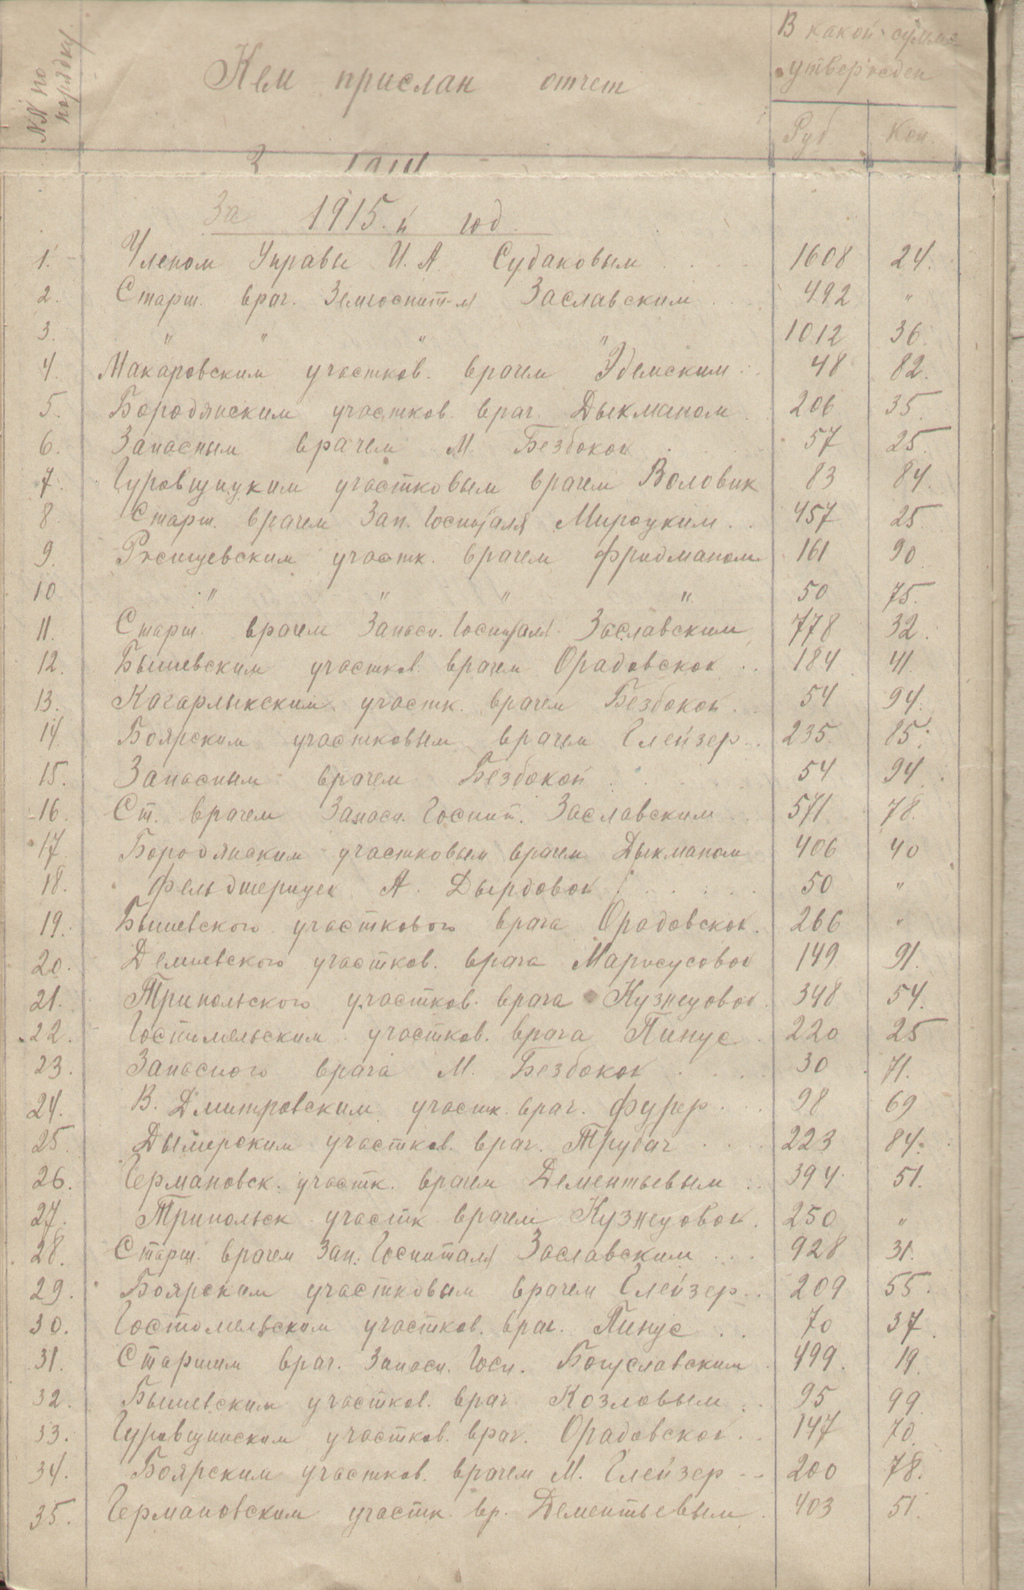 NN по порядку
Кем прислан отчет
В какой сумме утвержден
Руб Коп.
За 1915 й год
1. Членом Управы И. А. Судаковым 1608 24.
2. Старш. врач. Земгоспит-ля Заславским 492 "
3. " " " " 1012 36.
4. Макаровским участков. врачем Удемским 48 82.
5. Бородянским участков. врач. Дыкманом 206 35
6. Запасным врачем М. Безбокой 57 25
7. Гуровщицким участковым врачем Воловик 83 84.
8. Старш. врачем Зап. Госпиталя Мироцким 457 25
9. Ржищевским участк. врачем Фридманом 161 90
10 " " " " 50 75.
11. Старш. врачем Запасн. Госпиталя Заславским 778 32.
12. Бышевским участков. врачем Орадовской 184 41
13. Кагарлыкским участк. врачем Безбокой 54 94.
14 Боярским участковым врачем Глейзер 235 85.
15. Запасным врачем Безбокой 54 94
16. Ст. врачем Запасн. Госпит. Заславским 571 78.
17 Бородянским участковым врачем Дыкманом 406 40
18. Фельдшерицей А. Дырдовой 50 "
19. Бышевского участкового врача Орадовской. 266 "
20. Демиевского участков. врача 149 91.
21. Трипольского участков. врача Кузнецовой 348 54.
22. Гостомельским участков. врача Пинус 220 25
23. Запасного врача М. Безбокой 30 71.
24. В. Дмитровским участк. врач. Фурер 98 69
25 Дымерским участков. врач. Трубач 223 84.
26. Германовск. участк. врачем Дементьевым 394 51.
27. Трипольск участк врачем Кузнецовой. 250 "
28. Старш. врачем Зап. Госпиталя Заславским 928 31.
29. Боярским участковым врачем Глейзер 209 55.
30. Гостомельским участков. врач. Пинус 70 37.
31. Старшим врач. Запасн. Госп. Богуславским 499. 19.
32. Бышевским участков. врач. Козловым 95 99.
33. Гуровщинским участков. врач. Орадовской 147 70.
34. Боярским участков. врачем М. Глейзер 200 78.
35. Германовским участк вр. Дементьевым 403 51.